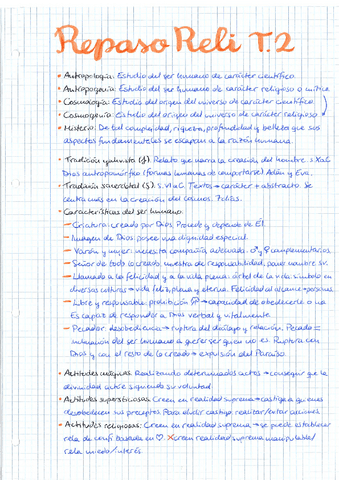 Repaso Reli T.2
• Antropología: Estudio del ser humano de carácter científico.
• Antropogenia: Estudio del ser humano de carácter religioso o mítico
• Cosmología: Estudio del origen del universo de carácter científico
• Cosmogonía: Estudio del origen del universo de carácter religioso
• Misterio: De tal complejidad, riqueza, profundidad y belleza que sus
aspectos fundamentales se escapan a la razón humana.
• Tradición yahvista (J). Relato que narra la creación del hombre. s X a.C
Dios antropomórfico (formas humanas de comportarse) Adán y Eva.
• Tradición sacerdotal (S). s. VI a.C. Textos → carácter + abstracto. Se
centra más en la creación del cosmos. 7 días.
• Características del ser humano:
– Criatura: creado por Dios. Procede y depende de Él.
– Imagen de Dios: posee una dignidad especial.
– Varón y mujer: necesita compañía adecuada. ♂ y ♀ complementarios.
– Señor de todo lo creado: muestra de responsabilidad, pone nombre
– Llamado a la felicidad y a la vida plena: árbol de la vida símbolo en
diversas culturas → vida feliz, plena y eterna. Felicidad al alcance
– Libre y responsable: prohibición → capacidad de obedecerle o no
Es capaz de responder a Dios verbal y vitalmente
– Pecador: desobediencia → ruptura del diálogo y relación. Pecado =
del ser humano a querer ser quien no es. Ruptura con
Dios y con el resto de lo creado → expulsión del Paraíso.
• Actitudes mágicas: Realizando determinados actos → conseguir que la
divinidad actúe siguiendo su voluntad
• Actitudes supersticiosas: Creen en realidad suprema → castiga a quienes
desobedecen sus preceptos. Para eludir castigo realizar/evitar acciones
• Actitudes religiosas: Creen en realidad suprema → se puede establecer
rela de conf. basada en ♡. X creen realidad suprema manipulable/
rela miedo/interés